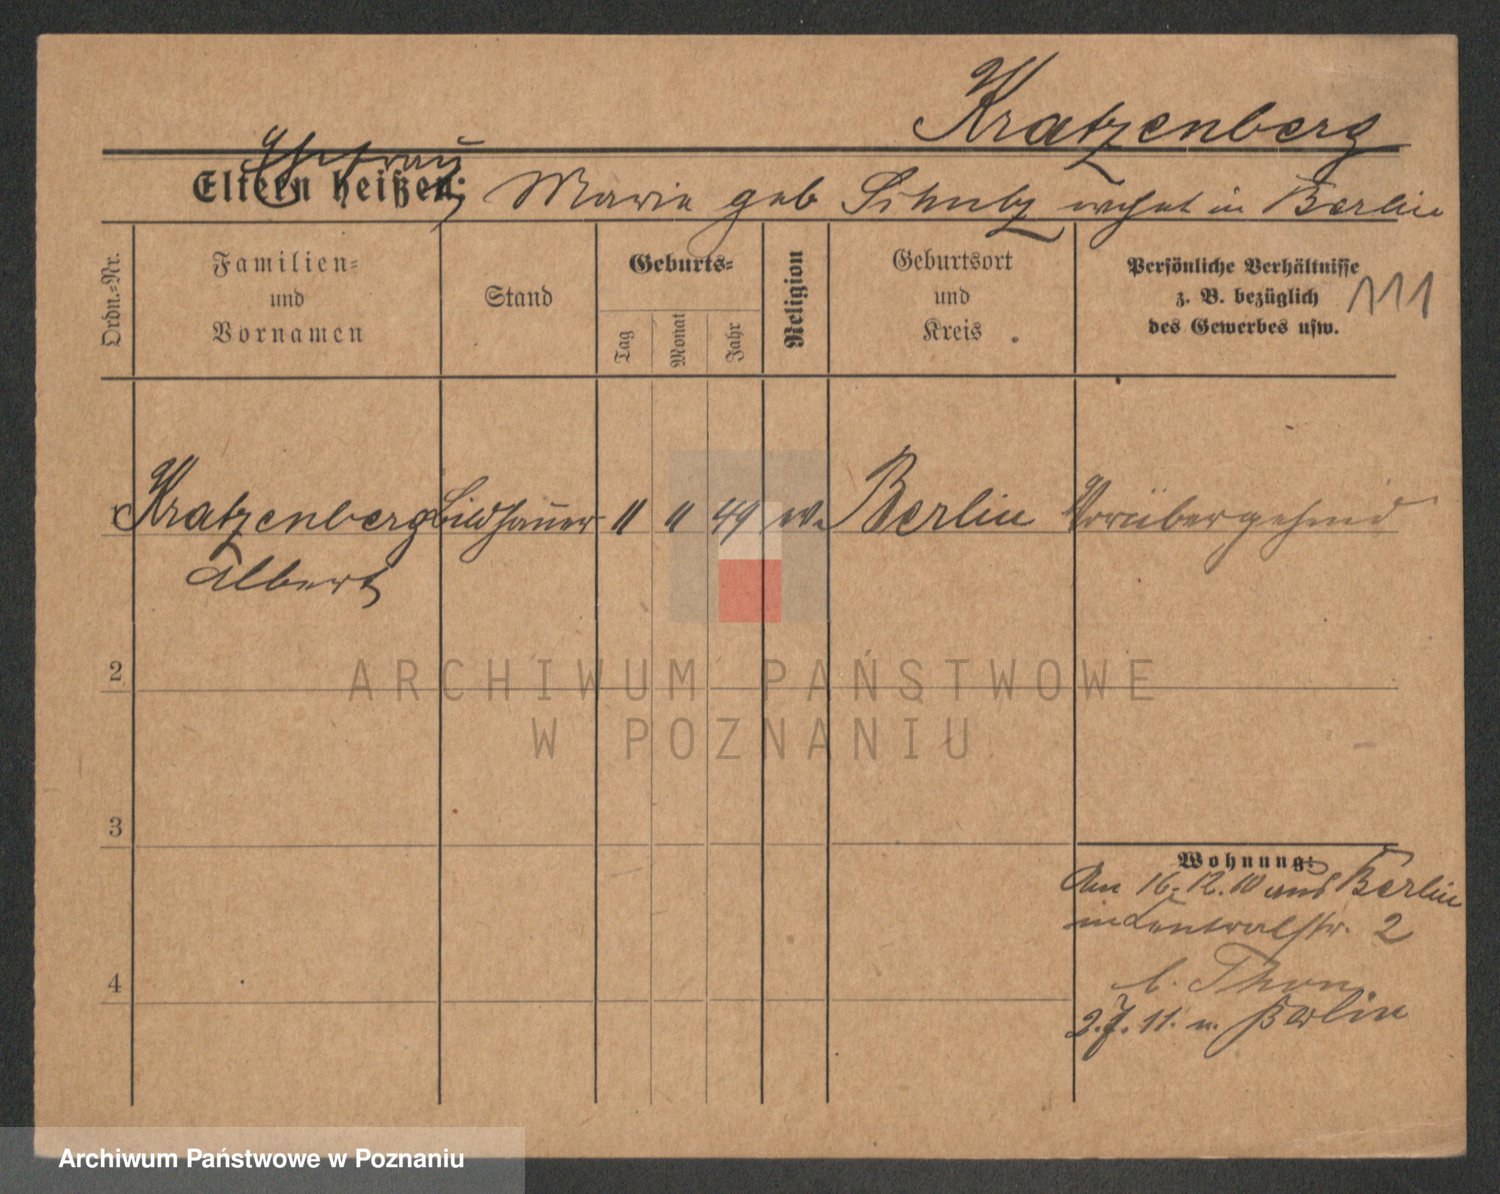 Kratzenberg
Ehefrau
Eltern heißen: Marie geb Schulz wohnt in Berlin
Ordn.-Nr.
Familien-
und
Vornamen
Stand
Geburts-
Tag
Monat
Jahr
Religion
Geburtsort
und
Kreis
Persönliche Verhältnisse
z. B. bezüglich
des Gewerbes usw.
111
Kratzenberg Bildhauer 11 11 49 Berlin Vorübergehend
Albert
2
ARCHIWUM PAŃSTWOWE
W POZNANIU
3
Wohnung:
Am 16.12.10 aus Berlin
in Centralstr. 2
b. Thon
2.7.11. n. Berlin
4
Archiwum Państwowe w Poznaniu